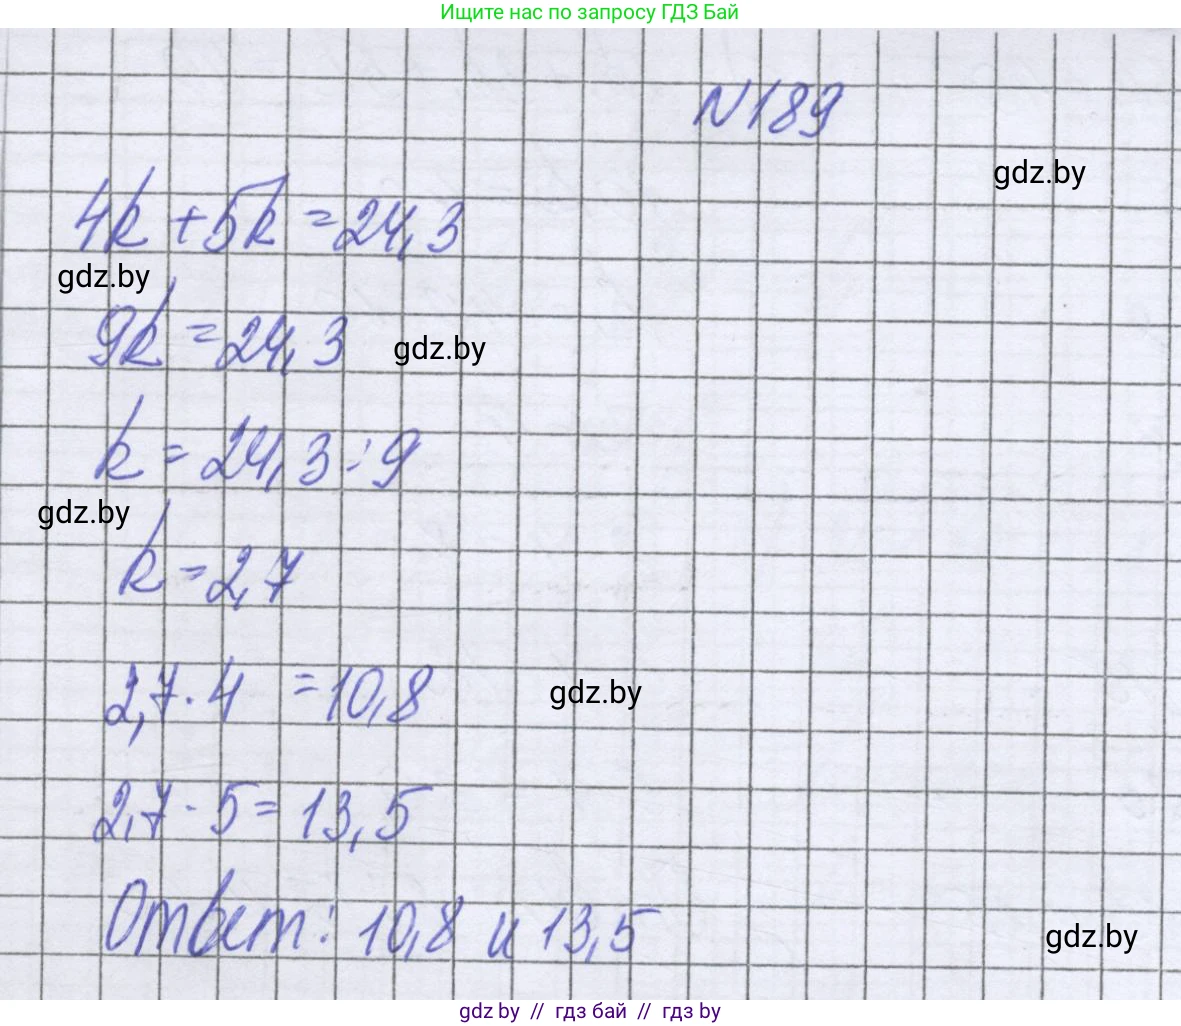 Ищите нас по запросу ГДЗ Бай
N189
gdz.by
4k + 5k = 24,3
gdz.by
9k = 24,3
gdz.by
k = 24,3 : 9
gdz.by
k = 2,7
2,7 · 4 = 10,8
gdz.by
2,7 · 5 = 13,5
Ответ: 10,8 и 13,5
gdz.by
gdz by // гдз бай // гдз by